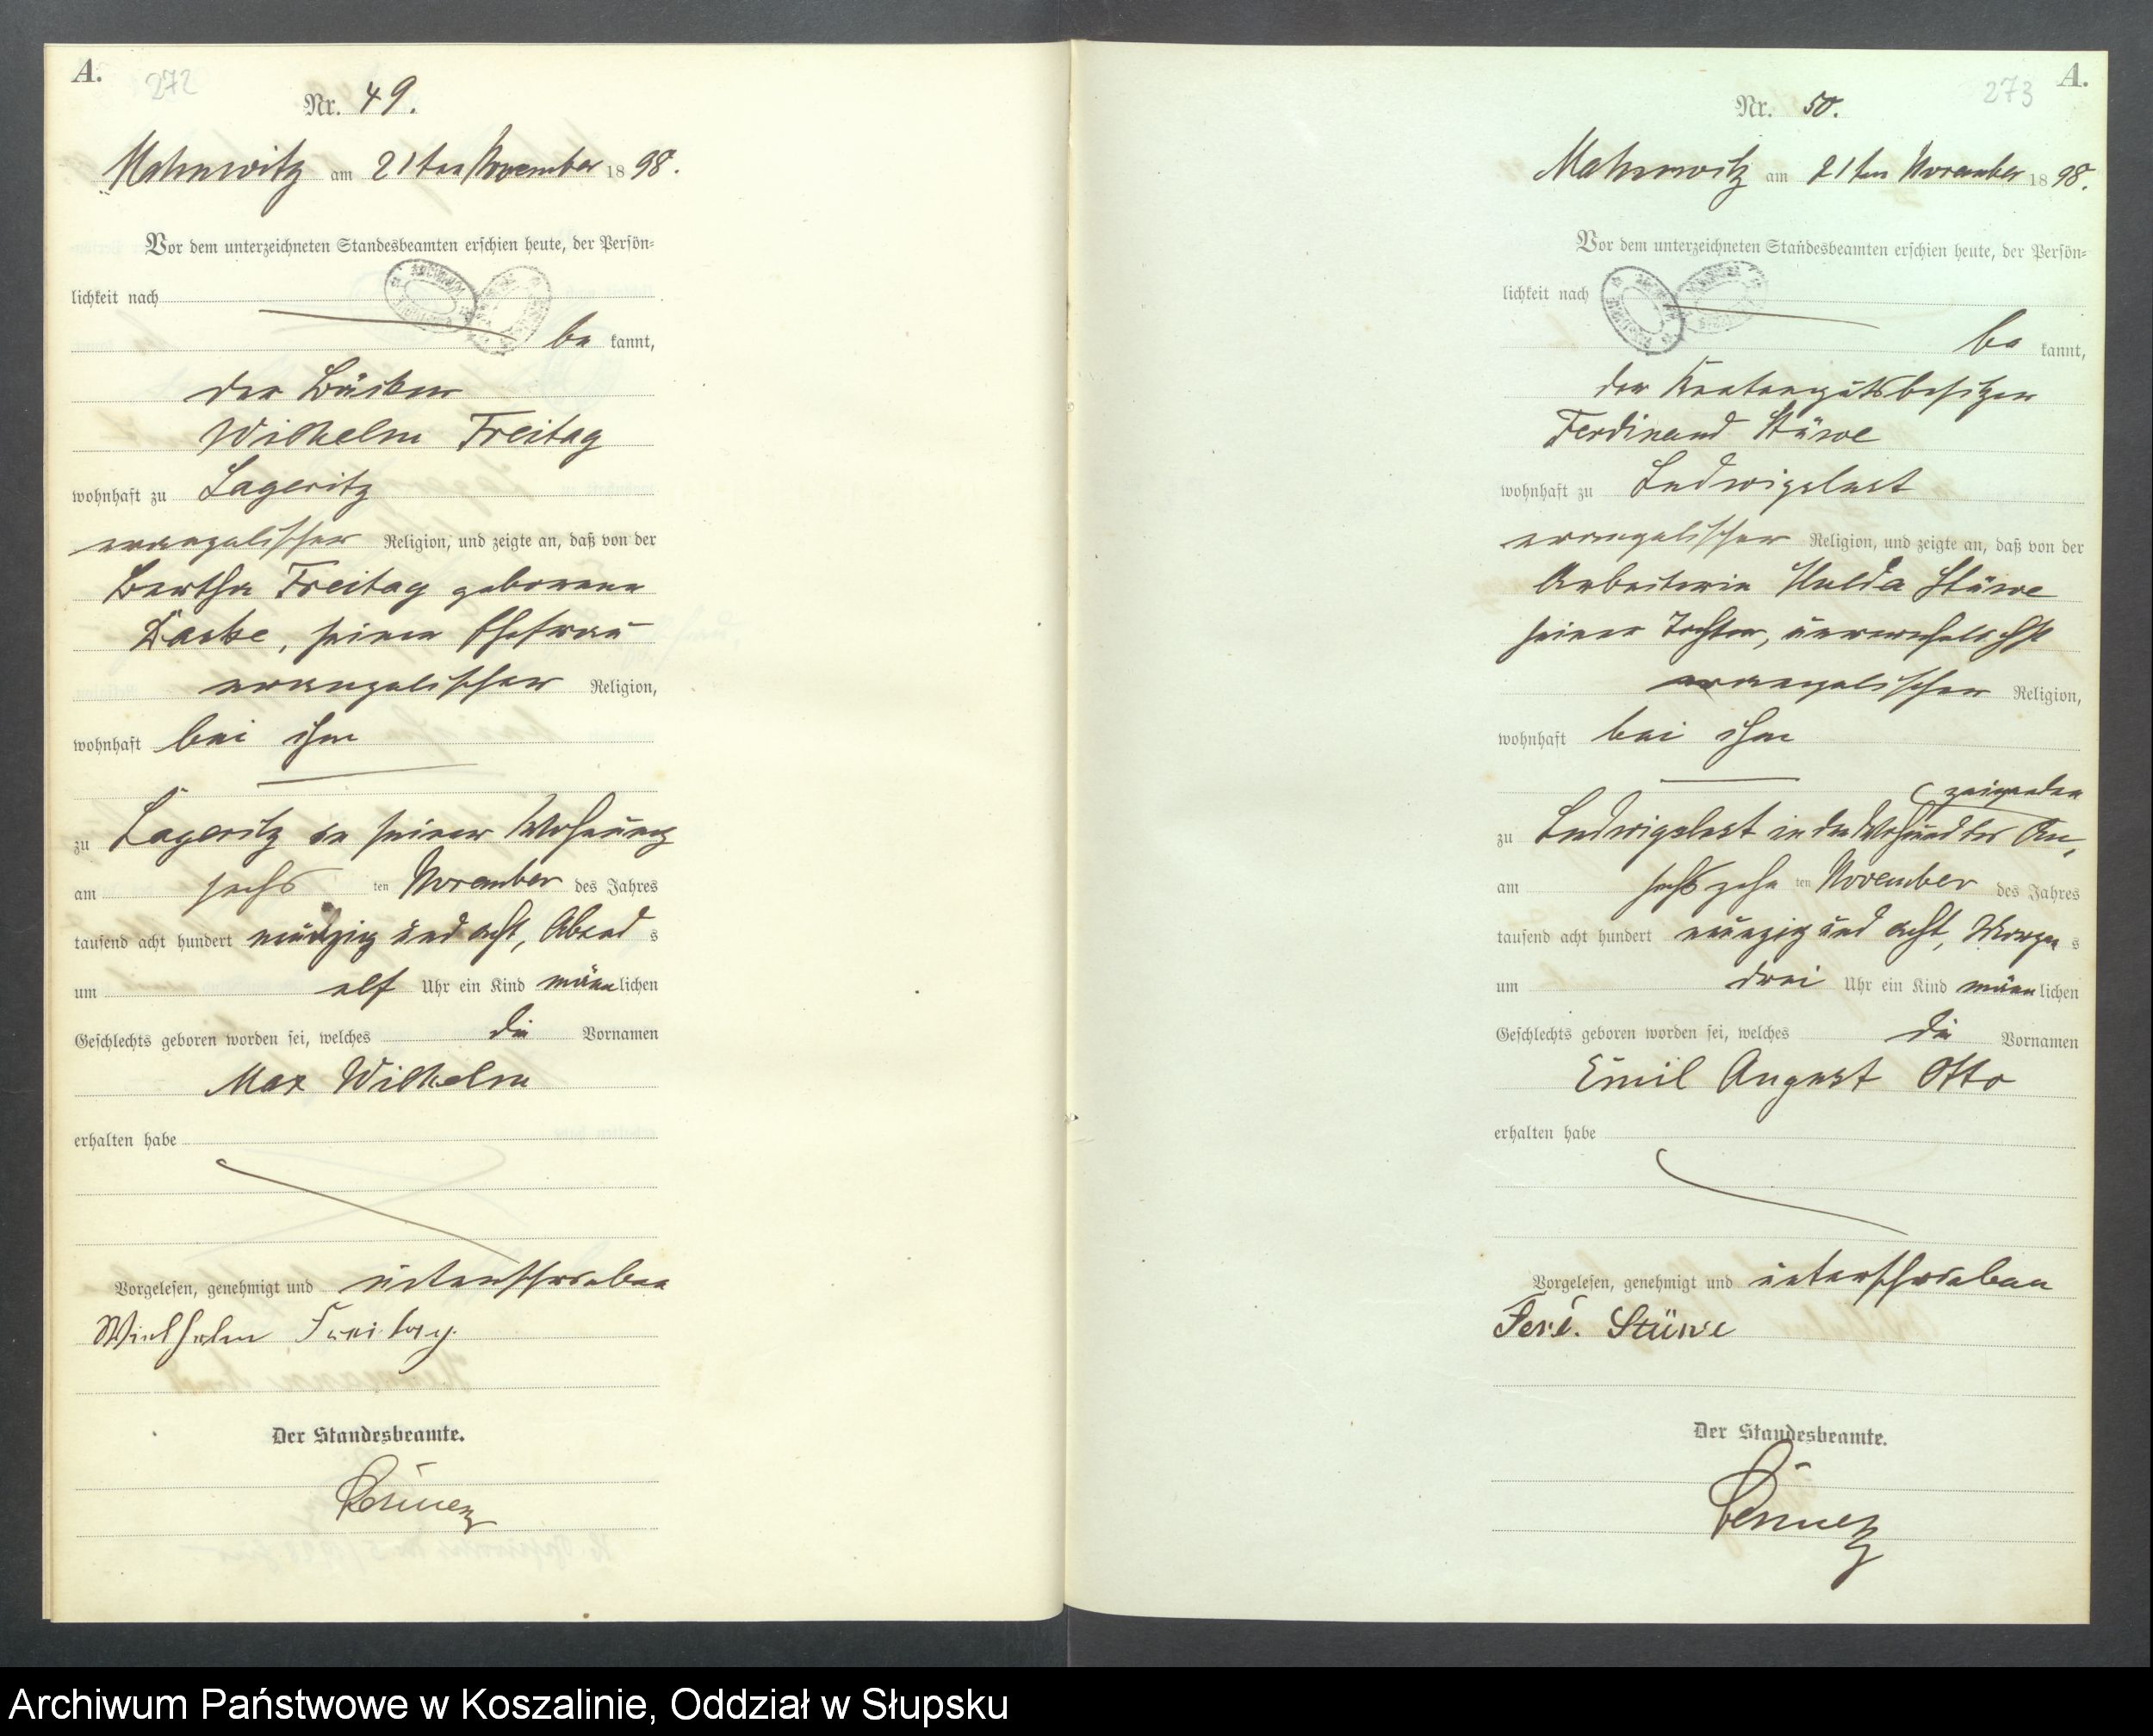 A.
272
Nr. 49.
Mahnwitz am 21ten November 1898.
Vor dem unterzeichneten Standesbeamten erschien heute, der Persön-
lichkeit nach
be kannt,
der
Wilhelm Freitag
wohnhaft zu Lageritz
evangelischer Religion, und zeigte an, daß von der
Bertha Freitag geborene
seiner Ehefrau
evangelischer Religion,
wohnhaft bei ihm
zu Lageritz in seiner Wohnung
am sechs ten November des Jahres
tausend acht hundert neunzig und acht, Abend s
um elf Uhr ein Kind männ lichen
Geschlechts geboren worden sei, welches die Vornamen
Max Wilhelm
erhalten habe
Vorgelesen, genehmigt und unterschrieben
Wielhelm Freitag.
Der Standesbeamte.
A.
273
Nr. 50.
Mahnwitz am 21ten November 1898.
Vor dem unterzeichneten Standesbeamten erschien heute, der Persön-
lichkeit nach
be kannt,
der Rentengutsbesitzer
Ferdinand Stüwe
wohnhaft zu Ludwigslust
evangelischer Religion, und zeigte an, daß von der
Arbeiterin Hulda Stüwe
seiner Tochter, unverehelicht
evangelischer Religion,
wohnhaft bei ihm
zeigenden
zu Ludwigslust in der des An-
am sechszehn ten November des Jahres
tausend acht hundert neunzig und acht, Morgen s
um drei Uhr ein Kind männ lichen
Geschlechts geboren worden sei, welches die Vornamen
Emil August Otto
erhalten habe
Vorgelesen, genehmigt und unterschrieben
Ferd. Stüwe
Der Standesbeamte.
Archiwum Państwowe w Koszalinie, Oddział w Słupsku